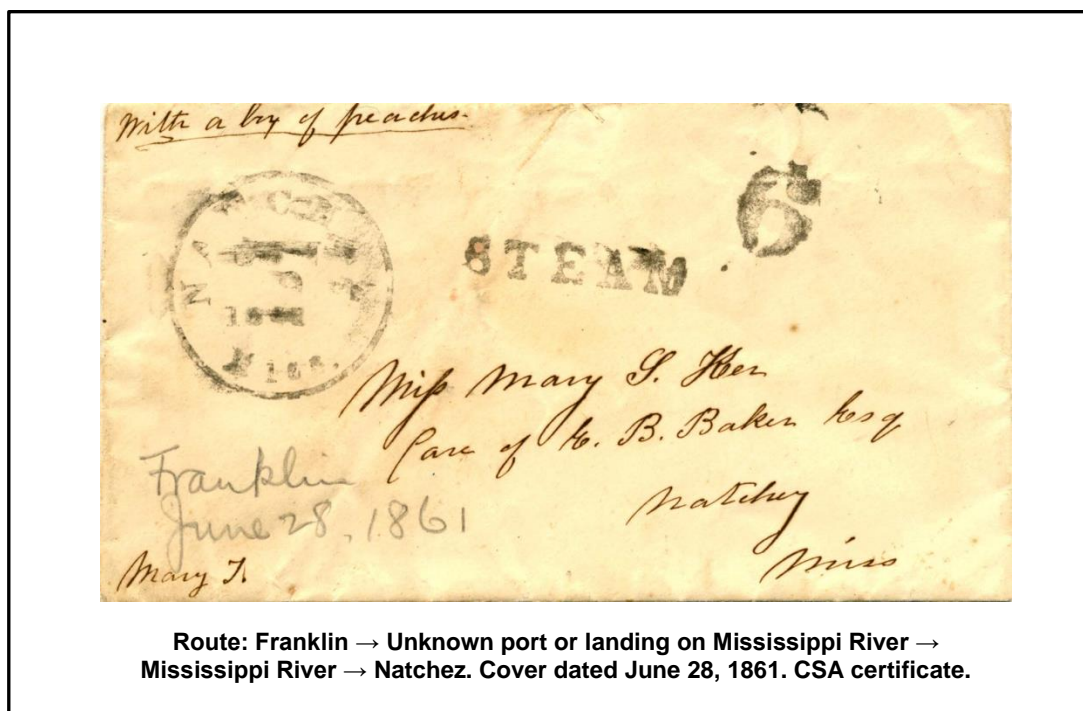 With a box of peaches.
NATCHEZ
Miss.
STEAM
6
Miss Mary S. Ker
Care of E. B. Baker Esq
Natchez
Miss
Franklin
June 28, 1861
Mary T.
Route: Franklin → Unknown port or landing on Mississippi River →
Mississippi River → Natchez. Cover dated June 28, 1861. CSA certificate.